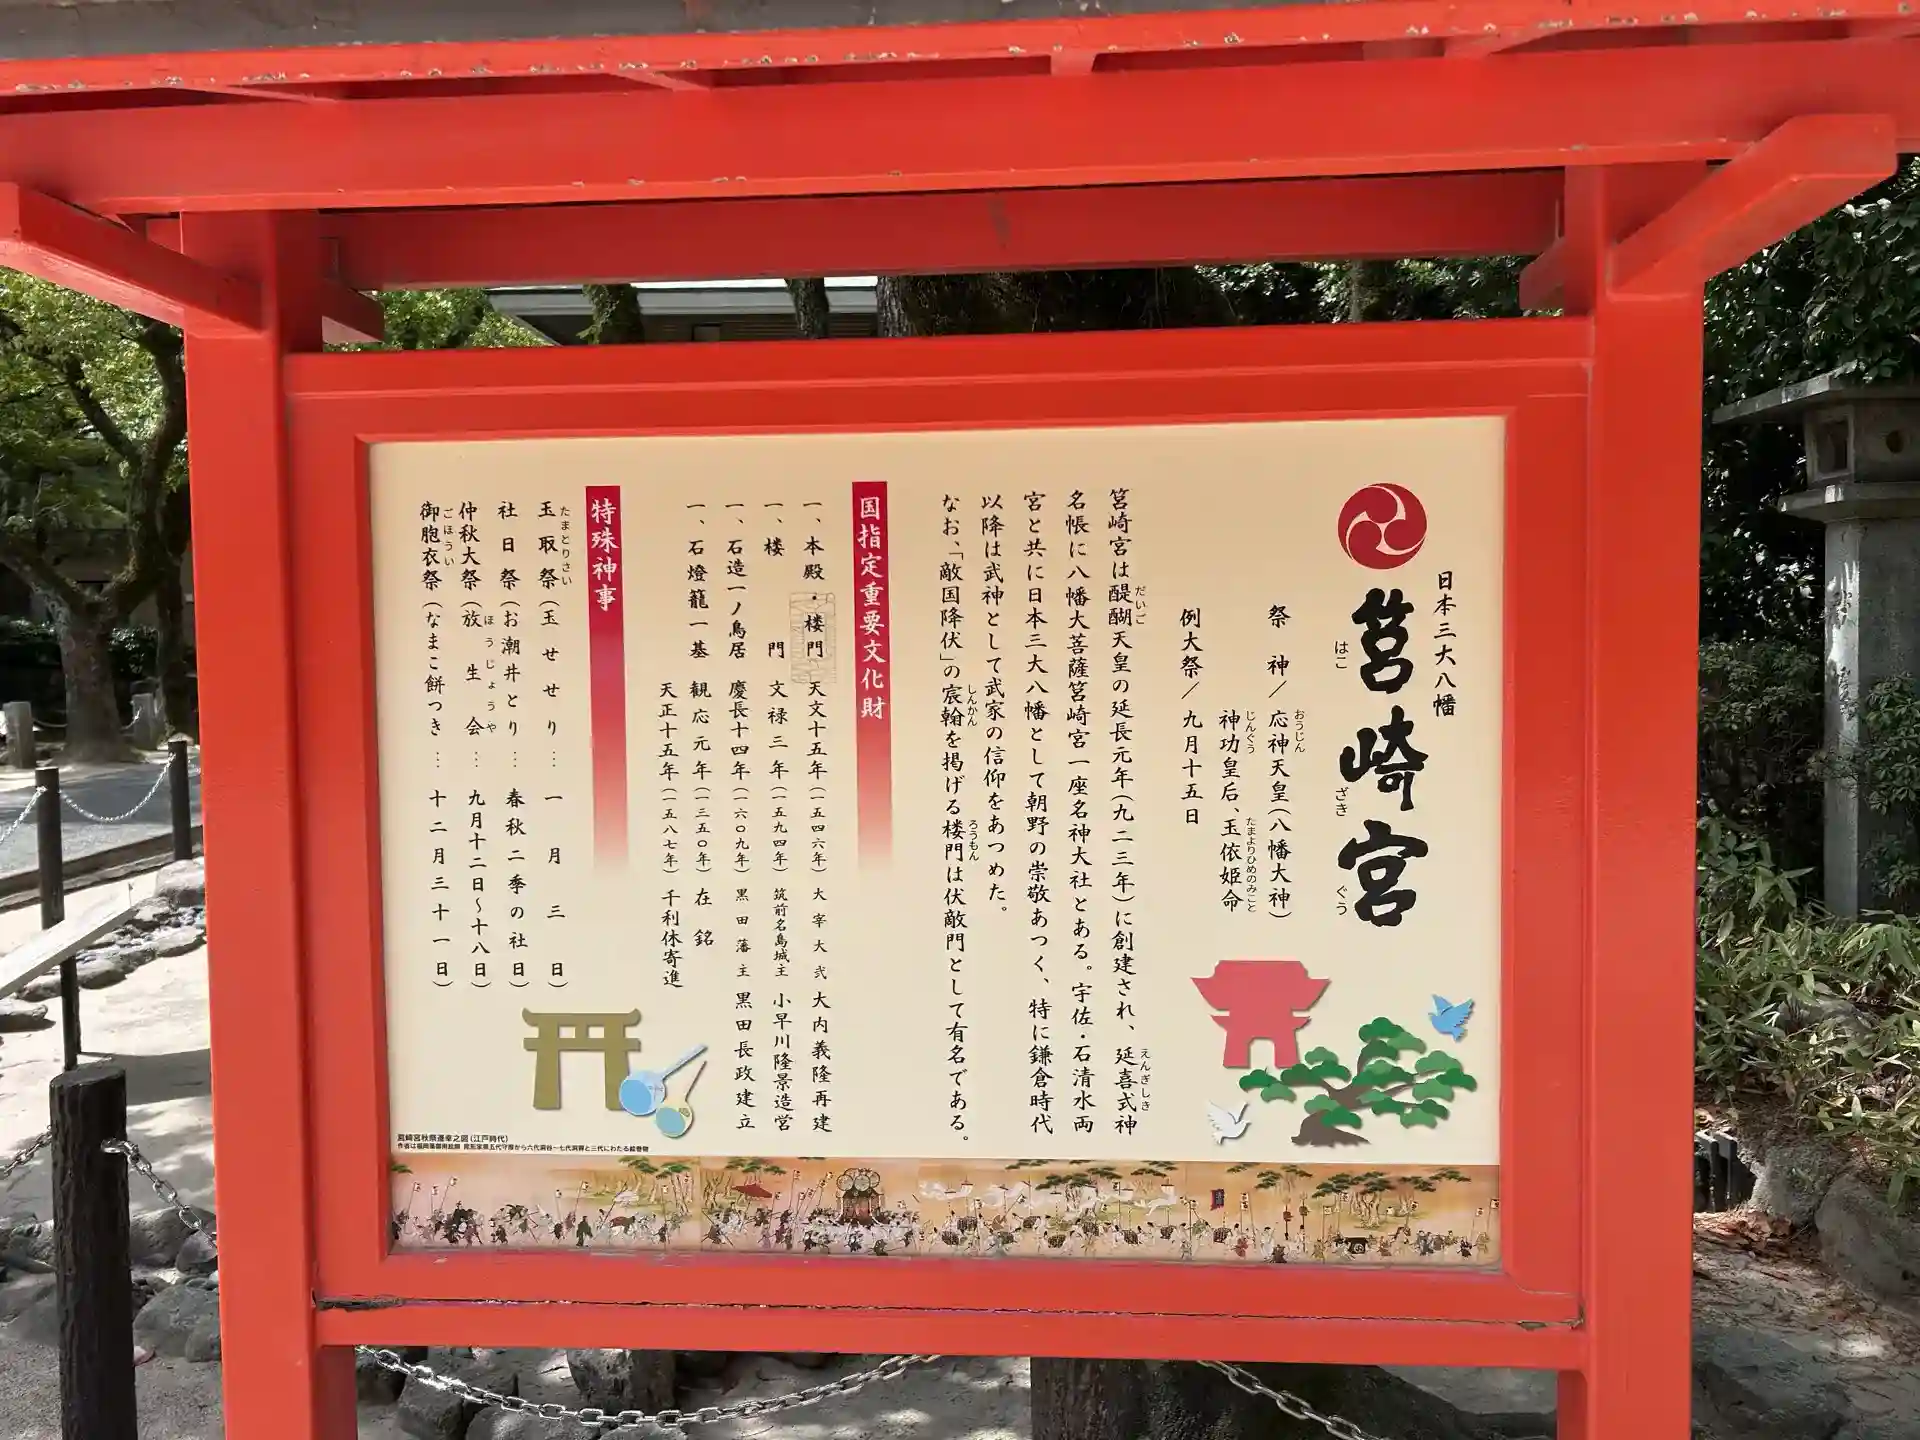 日本三大八幡
筥崎宮
はこざきぐう
祭神／応神天皇(八幡大神)
おうじん
神功皇后、玉依姫命
じんぐう たまよりひめのみこと
例大祭／九月十五日
筥崎宮は醍醐天皇の延長元年(九二三年)に創建され、延喜式神
だいご えんぎしき
名帳に八幡大菩薩筥崎宮一座名神大社とある。宇佐・石清水両
宮と共に日本三大八幡として朝野の崇敬あつく、特に鎌倉時代
以降は武神として武家の信仰をあつめた。
なお、「敵国降伏」の宸翰を掲げる楼門は伏敵門として有名である。
しんかん ろうもん
国指定重要文化財
一、本殿・楼門 天文十五年(一五四六年)大宰大弐 大内義隆再建
一、楼門 文禄三年(一五九四年)筑前名島城主 小早川隆景造営
一、石造一ノ鳥居 慶長十四年(一六〇九年)黒田藩主 黒田長政建立
一、石燈籠一基 観応元年(一三五〇年)在銘
天正十五年(一五八七年)千利休寄進
特殊神事
玉取祭(玉せせり… 一月三日)
たまとりさい
社日祭(お潮井とり… 春秋二季の社日)
仲秋大祭(放生会… 九月十二日〜十八日)
ほうじょうや
御胞衣祭(なまこ餅つき… 十二月三十一日)
ごほうい
筥崎宮秋祭遷幸之図(江戸時代)